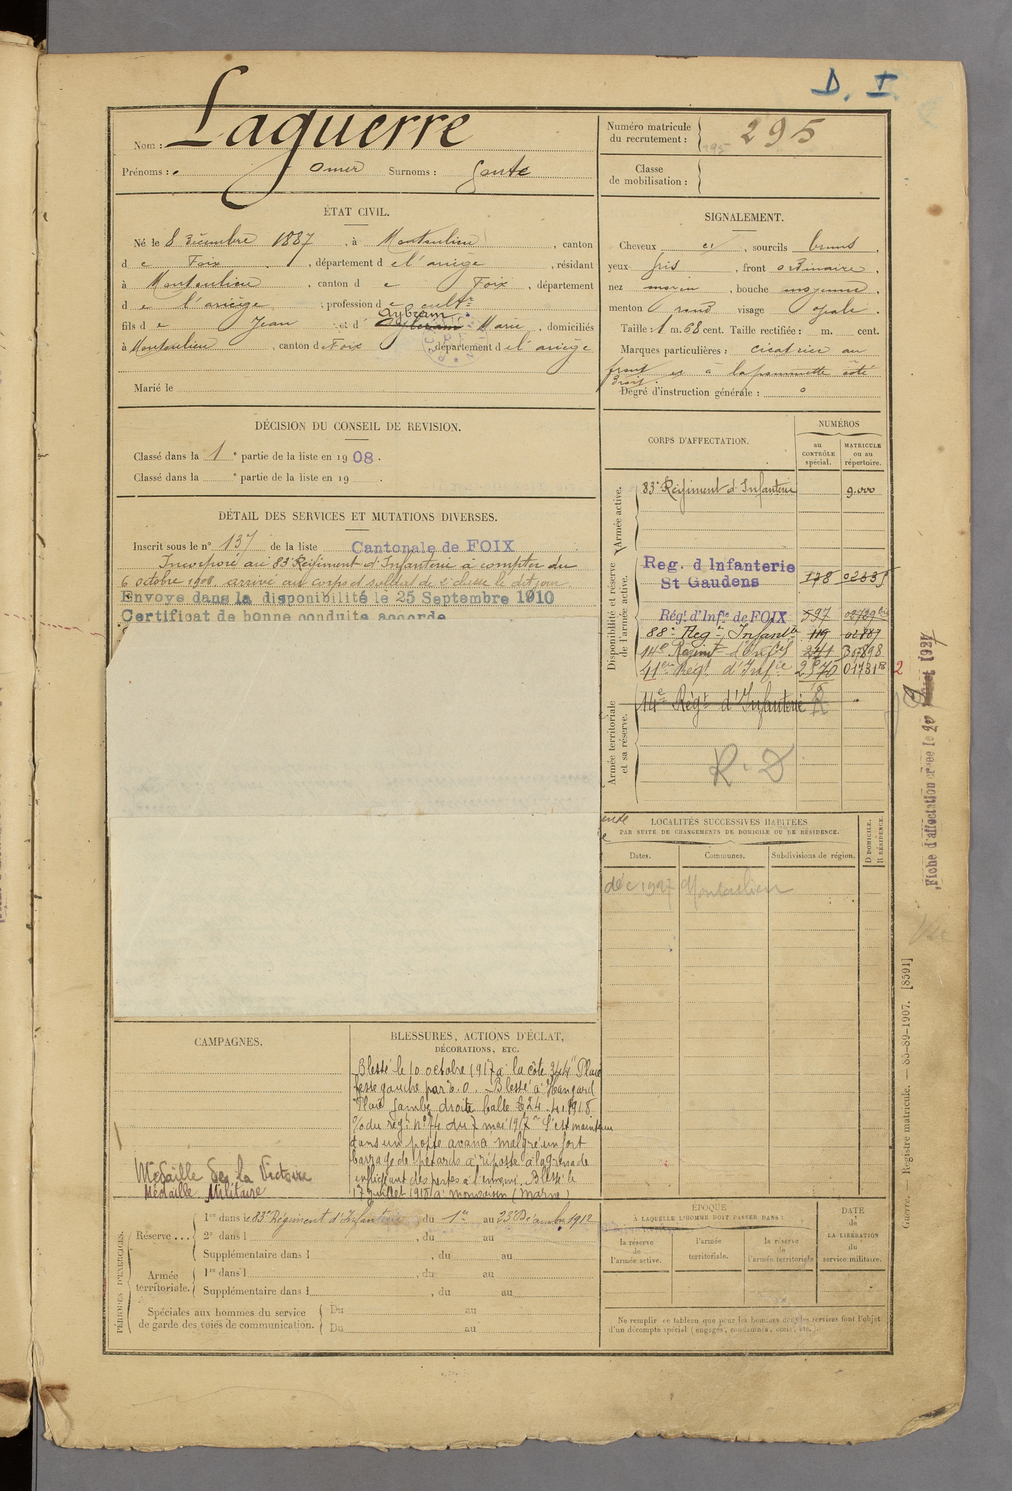 D. I.
Nom : Laguerre
Prénoms : Omer Surnoms : Goute
Numéro matricule du recrutement : 295
Classe de mobilisation :
ÉTAT CIVIL.
Né le 8 Décembre 1887, à Montoulieu, canton
d e Foix, département d e l'ariège, résidant
à Montoulieu, canton d e Foix, département
d e l'ariège, profession d e cultr
fils d e Jean et d Aybram Marie, domiciliés
à Montoulieu, canton d e Foix, département d e l'ariège
Marié le
SIGNALEMENT.
Cheveux et, sourcils bruns.
yeux gris, front ordinaire.
nez moyen, bouche moyenne.
menton rond visage ovale.
Taille : 1 m. 68 cent. Taille rectifiée : m. cent.
Marques particulières : cicatrice au
front et à la pommette côté
droit.
Dégré d'instruction générale : 0
DÉCISION DU CONSEIL DE REVISION.
Classé dans la 1e partie de la liste en 1908.
Classé dans la e partie de la liste en 19 .
DÉTAIL DES SERVICES ET MUTATIONS DIVERSES.
Inscrit sous le n° 137 de la liste Cantonale de FOIX
Incorporé au 83e Régiment d'Infanterie à compter du
6 octobre 1908. arrivé au corps et soldat de 2e classe le dit jour.
Envoyé dans la disponibilité le 25 Septembre 1910
Certificat de bonne conduite accordé
CORPS D'AFFECTATION.
NUMÉROS
au CONTRÔLE spécial.
MATRICULE ou au répertoire.
Armée active.
83e Régiment d'Infanterie 9.000
Disponibilité et réserve de l'armée active.
Reg. d Infanterie
St Gaudens
Rég. d'Infie de FOIX
88e Regt Infantie
14e Regimt d'Infie
41em Régt d'Infie
Armée territoriale et sa réserve.
14e Régt d'Infanterie
R. D
Fiche d'affectation
LOCALITÉS SUCCESSIVES HABITÉES
PAR SUITE DE CHANGEMENTS DE DOMICILE OU DE RÉSIDENCE.
Dates. Communes. Subdivisions de région. D DOMICILE. R RÉSIDENCE.
déc 1927 Montoulieu
CAMPAGNES.
Médaille de la Victoire
Médaille Militaire
BLESSURES, ACTIONS D'ÉCLAT,
DÉCORATIONS, ETC.
Blessé le 10 octobre 1917 à la côte 344 "Plaie
fesse gauche par é.o. Blessé à Hangard
Plaie jambe droite balle le 24.4.1918
du régt n° 74 du 7 mai 1917 "S'est maintenu
dans un poste avancé malgré un fort
barrage de pétards a riposté à la grenade
infligeant des pertes à l'ennemi. Blessé le
17 juillet 1918 à (Marne)
PÉRIODES D'EXERCICES.
Réserve ... 1re dans le 83e Régiment d'Infanterie du 1er au 23 Décembre 1912
2e dans l , du au
Supplémentaire dans l , du au
Armée territoriale. 1re dans l , du au
Supplémentaire dans l , du au
Spéciales aux hommes du service de garde des voies de communication. Du au
Du au
ÉPOQUE
À LAQUELLE L'HOMME DOIT PASSER DANS :
la réserve de l'armée active.
l'armée territoriale.
la réserve de l'armée territoriale
DATE de LA LIBÉRATION du service militaire.
Ne remplir ce tableau que pour les hommes dont les services font l'objet
d'un décompte spécial (engagés, condamnés, omis, etc.).
Guerre. — Registre matricule. — 85-89-1907. [8591]